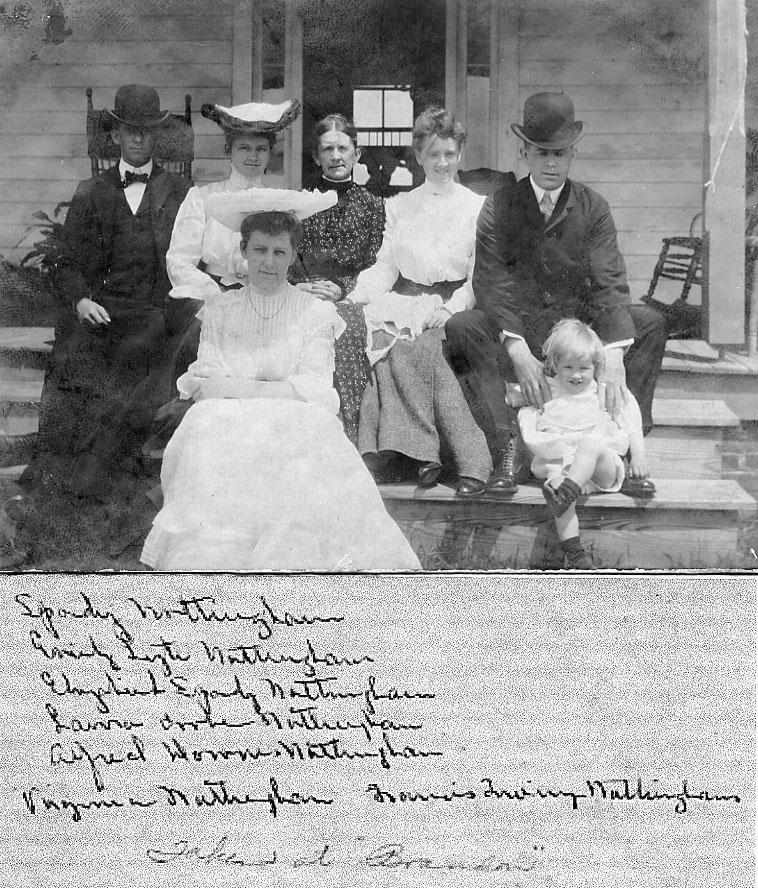 Spady Nottingham
Nottingham
Elizabeth Spady Nottingham
Laura Nottingham
Alfred Nottingham
Virginia Nottingham Francis Irving Nottingham
Taken at "Brandon"